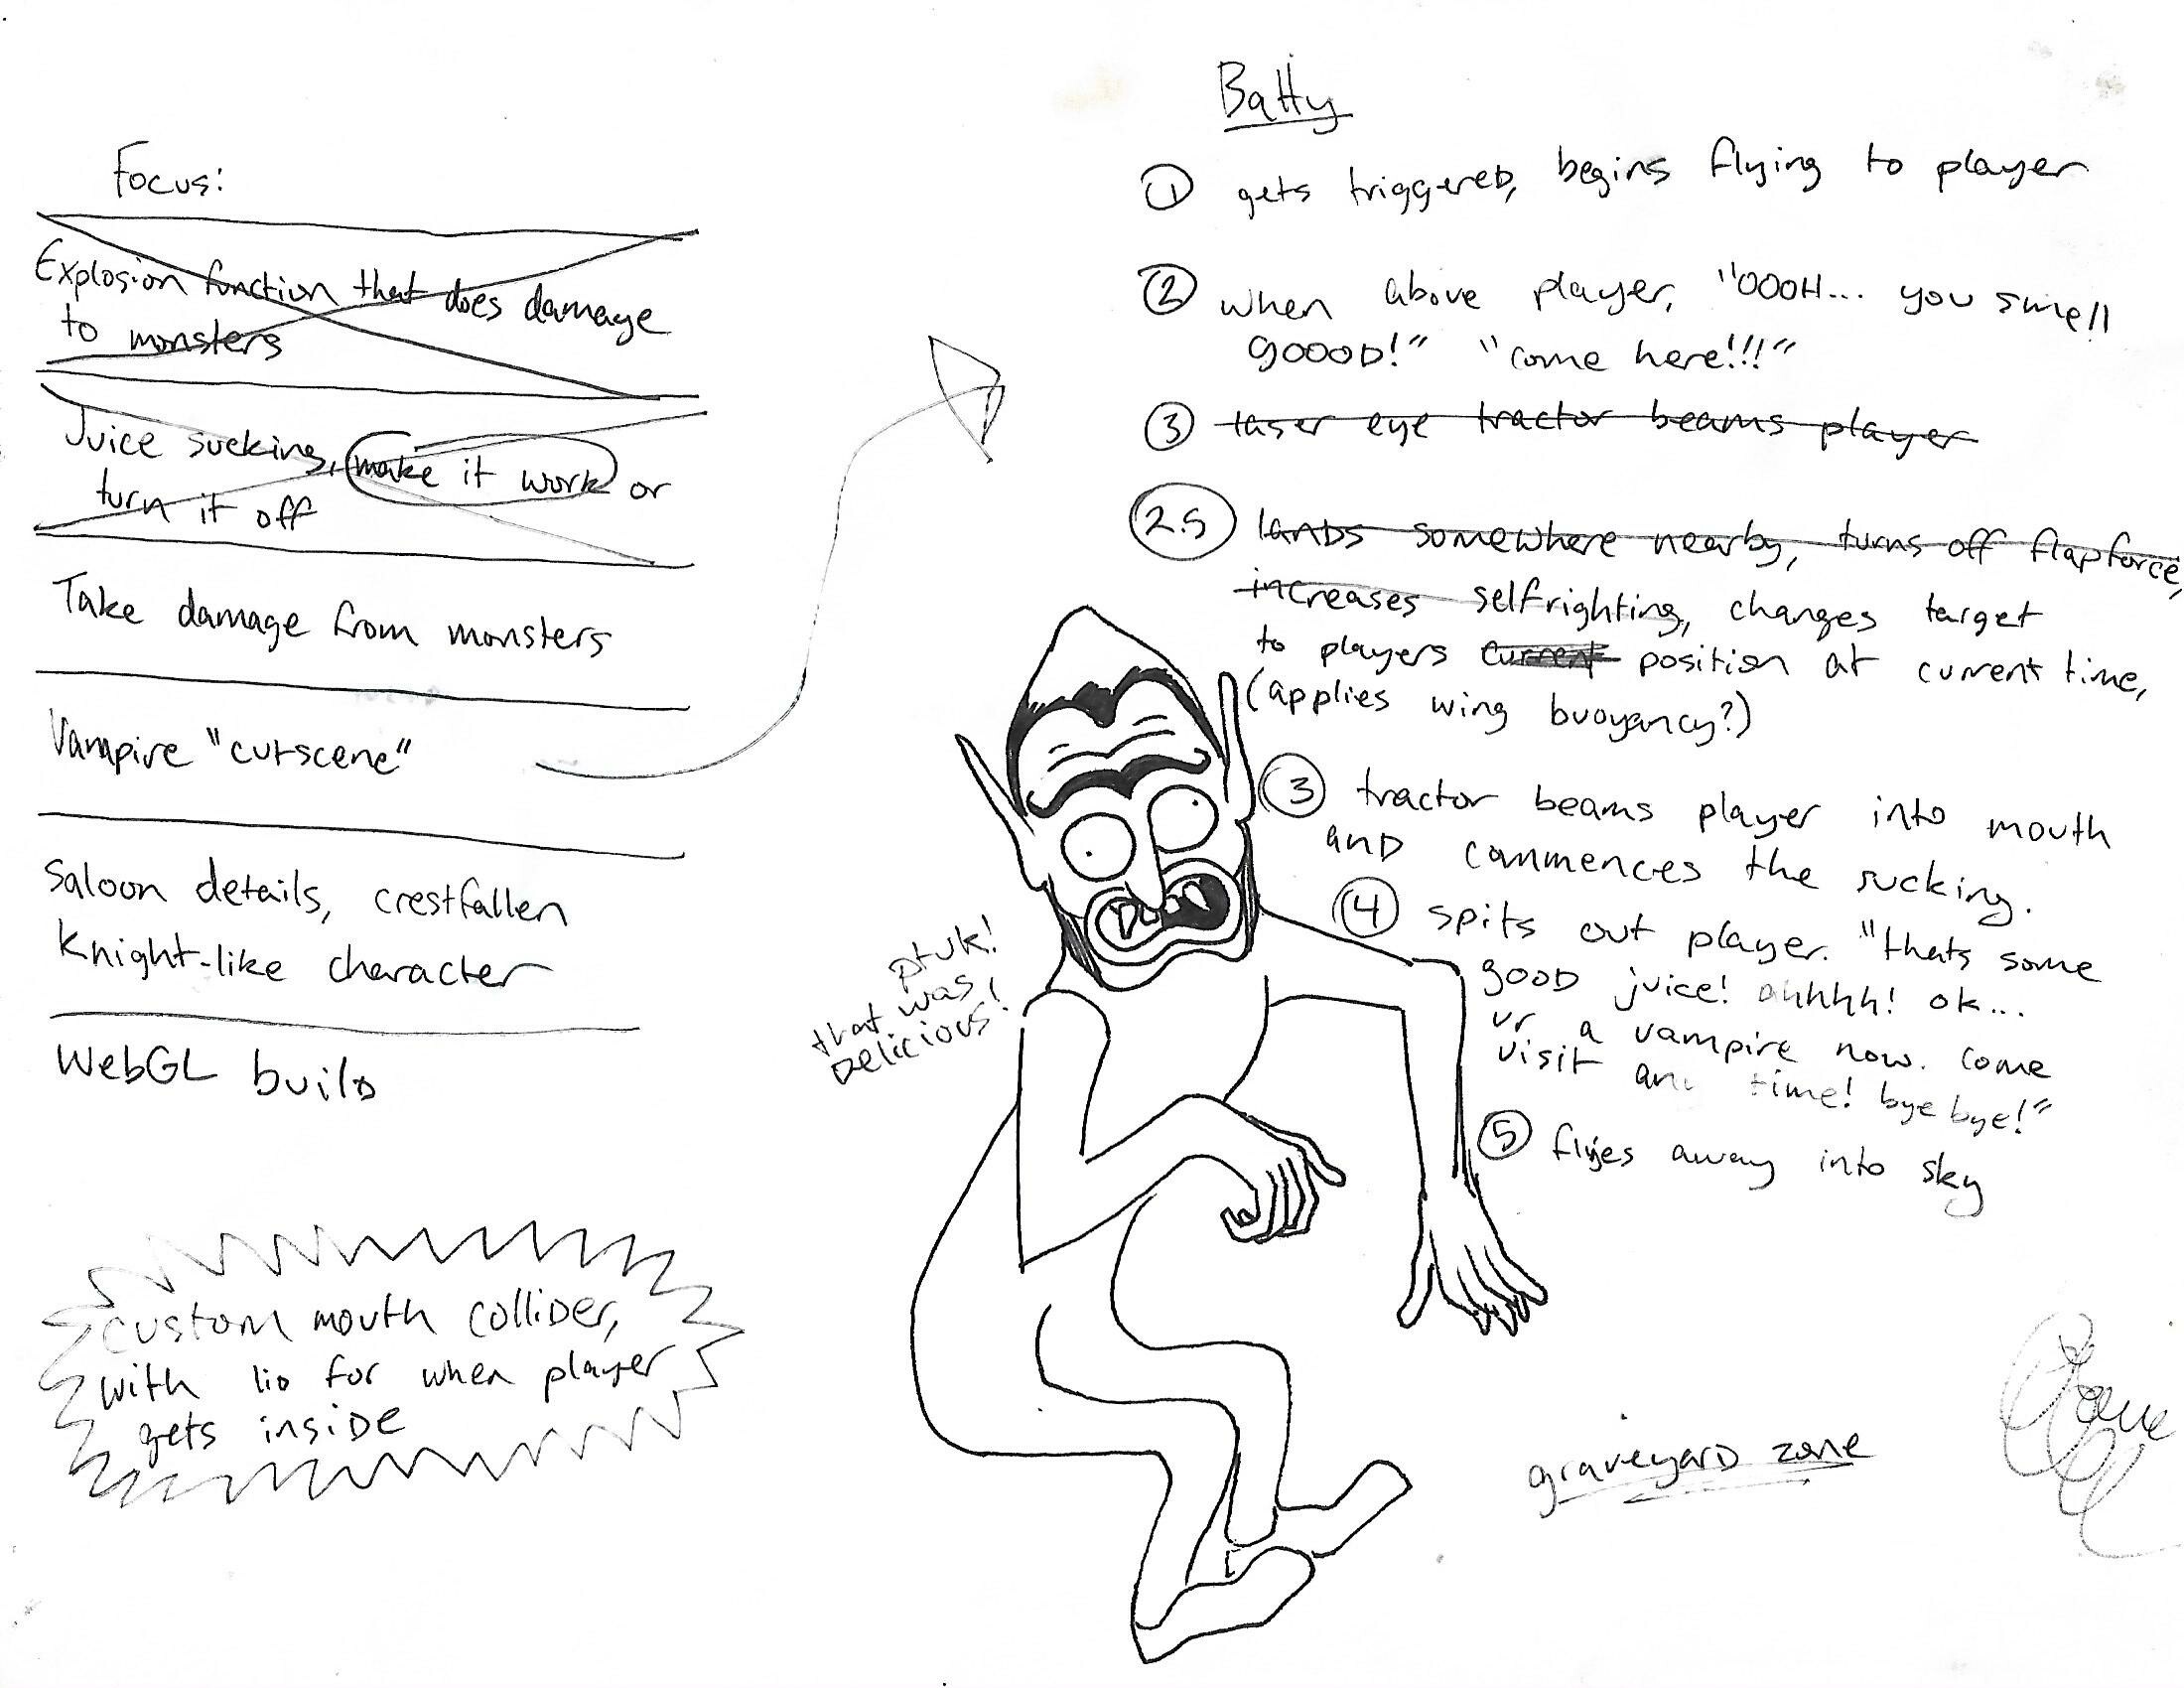 Focus:
Explosion function that does damage
to monsters
Juice sucking, make it work or
turn it off
Take damage from monsters
Vampire "cutscene"
Saloon details, crestfallen
Knight-like character
WebGL build
custom mouth collider,
with lid for when player
gets inside
Batty
① gets triggered, begins flying to player
② when above player, "OOOH... you smell
goood!" "come here!!!"
③ laser eye tractor beams player
2.5 lands somewhere nearby, turns off flapforce,
increases selfrighting, changes target
to players current position at current time,
(applies wing buoyancy?)
③ tractor beams player into mouth
and commences the sucking.
④ spits out player. "thats some
good juice! ahhhh! ok...
ur a vampire now. come
visit any time! bye bye!"
⑤ flyes away into sky
ptuk!
that was
delicious!
graveyard zone